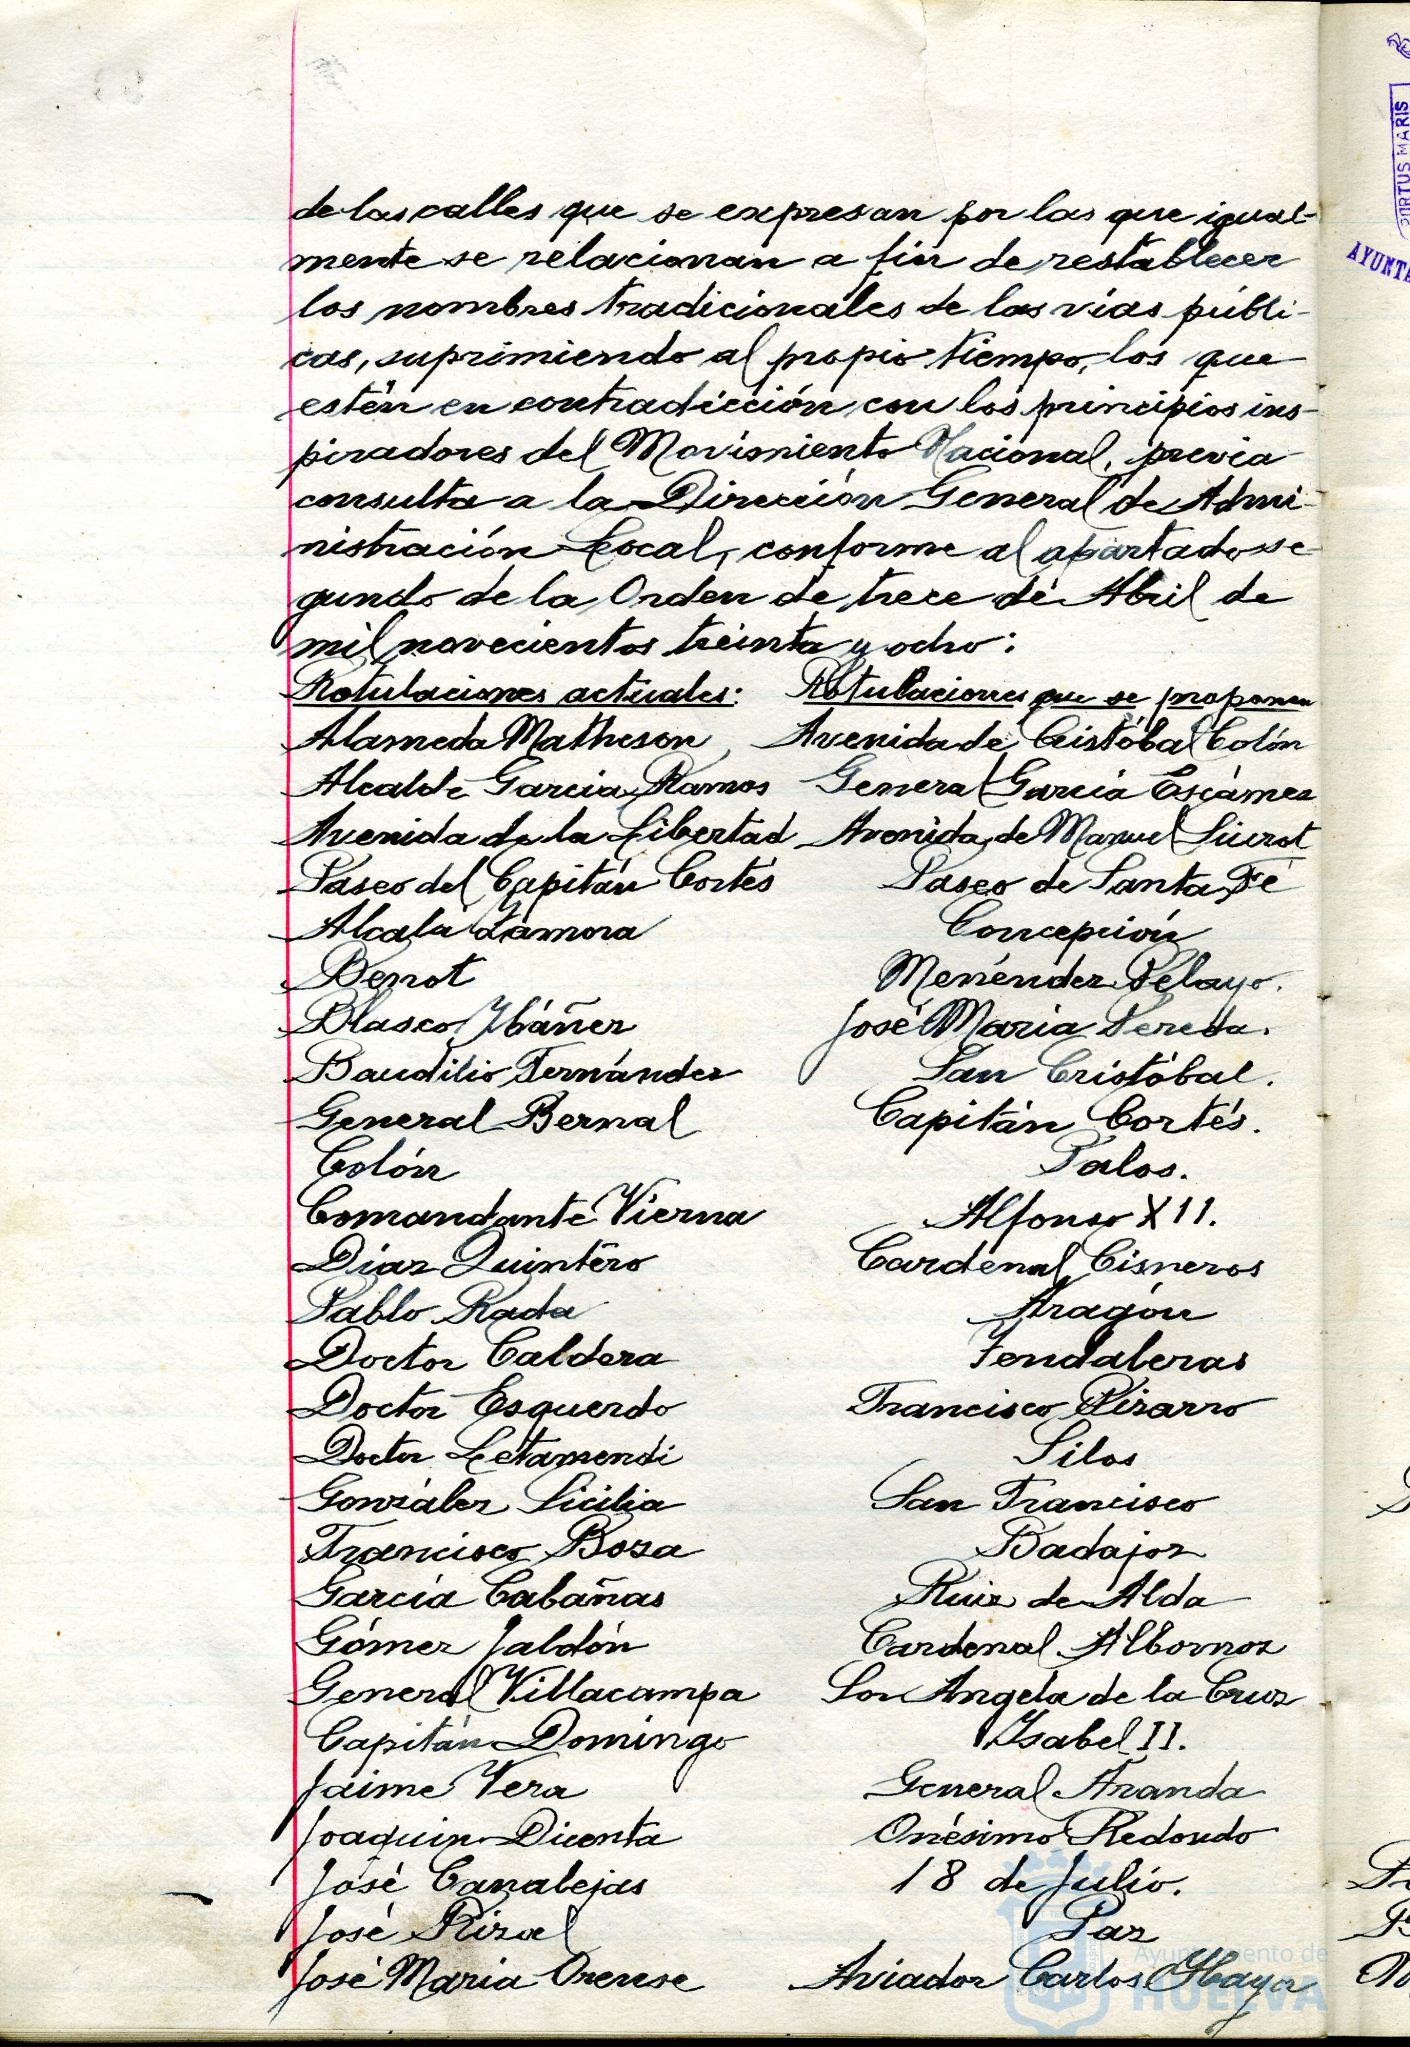 de las calles que se expresan por las que igual-
mente se relacionan a fin de restablecer
los nombres tradicionales de las vias públi-
cas, suprimiendo al propio tiempo, los que
estén en contradicción con los principios ins-
piradores del Movimiento Nacional, previa
consulta a la Dirección General de Admi-
nistración Local, conforme al apartado se-
gundo de la Orden de trece de Abril de
mil novecientos treinta y ocho:
Rotulaciones actuales: Rotulaciones que se proponen
Alameda Matheson Avenida de Cristóbal Colón
Alcalde Garcia Ramos General García Escámez
Avenida de la Libertad Avenida de Manuel Siurot
Paseo del Capitán Cortés Paseo de Santa Fé
Alcalá Zamora Concepción
Benot Menéndez Pelayo.
Blasco Ibáñez José Maria Pereda.
Baudilio Fernández San Cristóbal.
General Bernal Capitán Cortés.
Colón Palos.
Comandante Vierna Alfonso XII.
Diaz Quintero Cardenal Cisneros
Pablo Rada Aragón
Doctor Caldera Fendaleras
Doctor Esquerdo Francisco Pizarro
Doctor Letamendi Silos
González Sicilia San Francisco
Francisco Boza Badajoz
García Cabañas Ruiz de Alda
Gómez Jaldón Cardenal Albornoz
General Villacampa Sor Angela de la Cruz
Capitán Domingo Isabel II.
Jaime Vera General Aranda
Joaquin Dicenta Onésimo Redondo
José Canalejas 18 de Julio.
José Rizal Paz
José Maria Orense Aviador Carlos Haya
PORTUS MARIS
AYUNTA
Ayuntamiento de
HUELVA